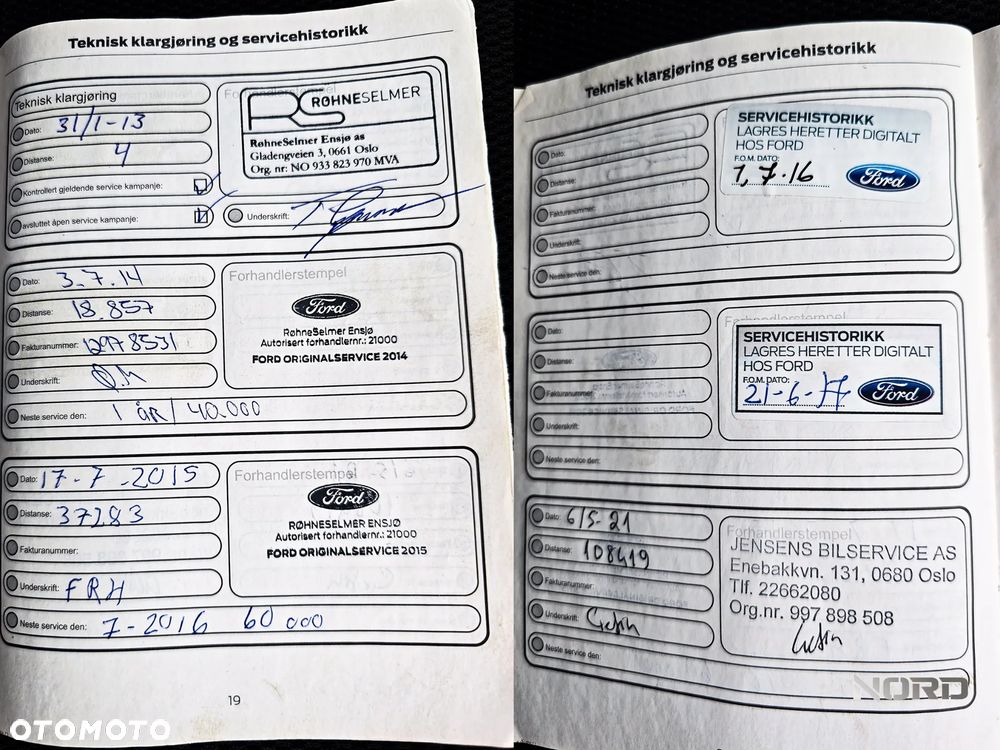 Teknisk klargjøring og servicehistorikk
Teknisk klargjøring
Dato: 31/1-13
Distanse: 4
Kontrollert gjeldende service kampanje:
avsluttet åpen service kampanje:
RS RØHNESELMER
RøhneSelmer Ensjø as
Gladengveien 3, 0661 Oslo
Org. nr: NO 933 823 970 MVA
Underskrift:
Dato: 3.7.14
Distanse: 18.857
Fakturanummer: 12978531
Underskrift: Ø.M
Neste service den: 1 ÅR / 40.000
Forhandlerstempel
Ford
RøhneSelmer Ensjø
Autorisert forhandlernr.: 21000
FORD ORIGINALSERVICE 2014
Dato: 17-7-2015
Distanse: 37283
Fakturanummer:
Underskrift: FRH
Neste service den: 7-2016 60 000
Forhandlerstempel
Ford
RØHNESELMER ENSJØ
Autorisert forhandlernr.: 21000
FORD ORIGINALSERVICE 2015
19
OTOMOTO
Teknisk klargjøring og servicehistorikk
Dato:
Distanse:
Fakturanummer:
Underskrift:
Neste service den:
SERVICEHISTORIKK
LAGRES HERETTER DIGITALT
HOS FORD
F.O.M. DATO:
1,7.16
Ford
Dato:
Distanse:
Fakturanummer:
Underskrift:
Neste service den:
Forhandlerstempel
SERVICEHISTORIKK
LAGRES HERETTER DIGITALT
HOS FORD
F.O.M. DATO:
21-6-17
Ford
Dato: 6/5-21
Distanse: 108419
Fakturanummer:
Underskrift:
Neste service den:
Forhandlerstempel
JENSENS BILSERVICE AS
Enebakkvn. 131, 0680 Oslo
Tlf. 22662080
Org.nr. 997 898 508
NORD